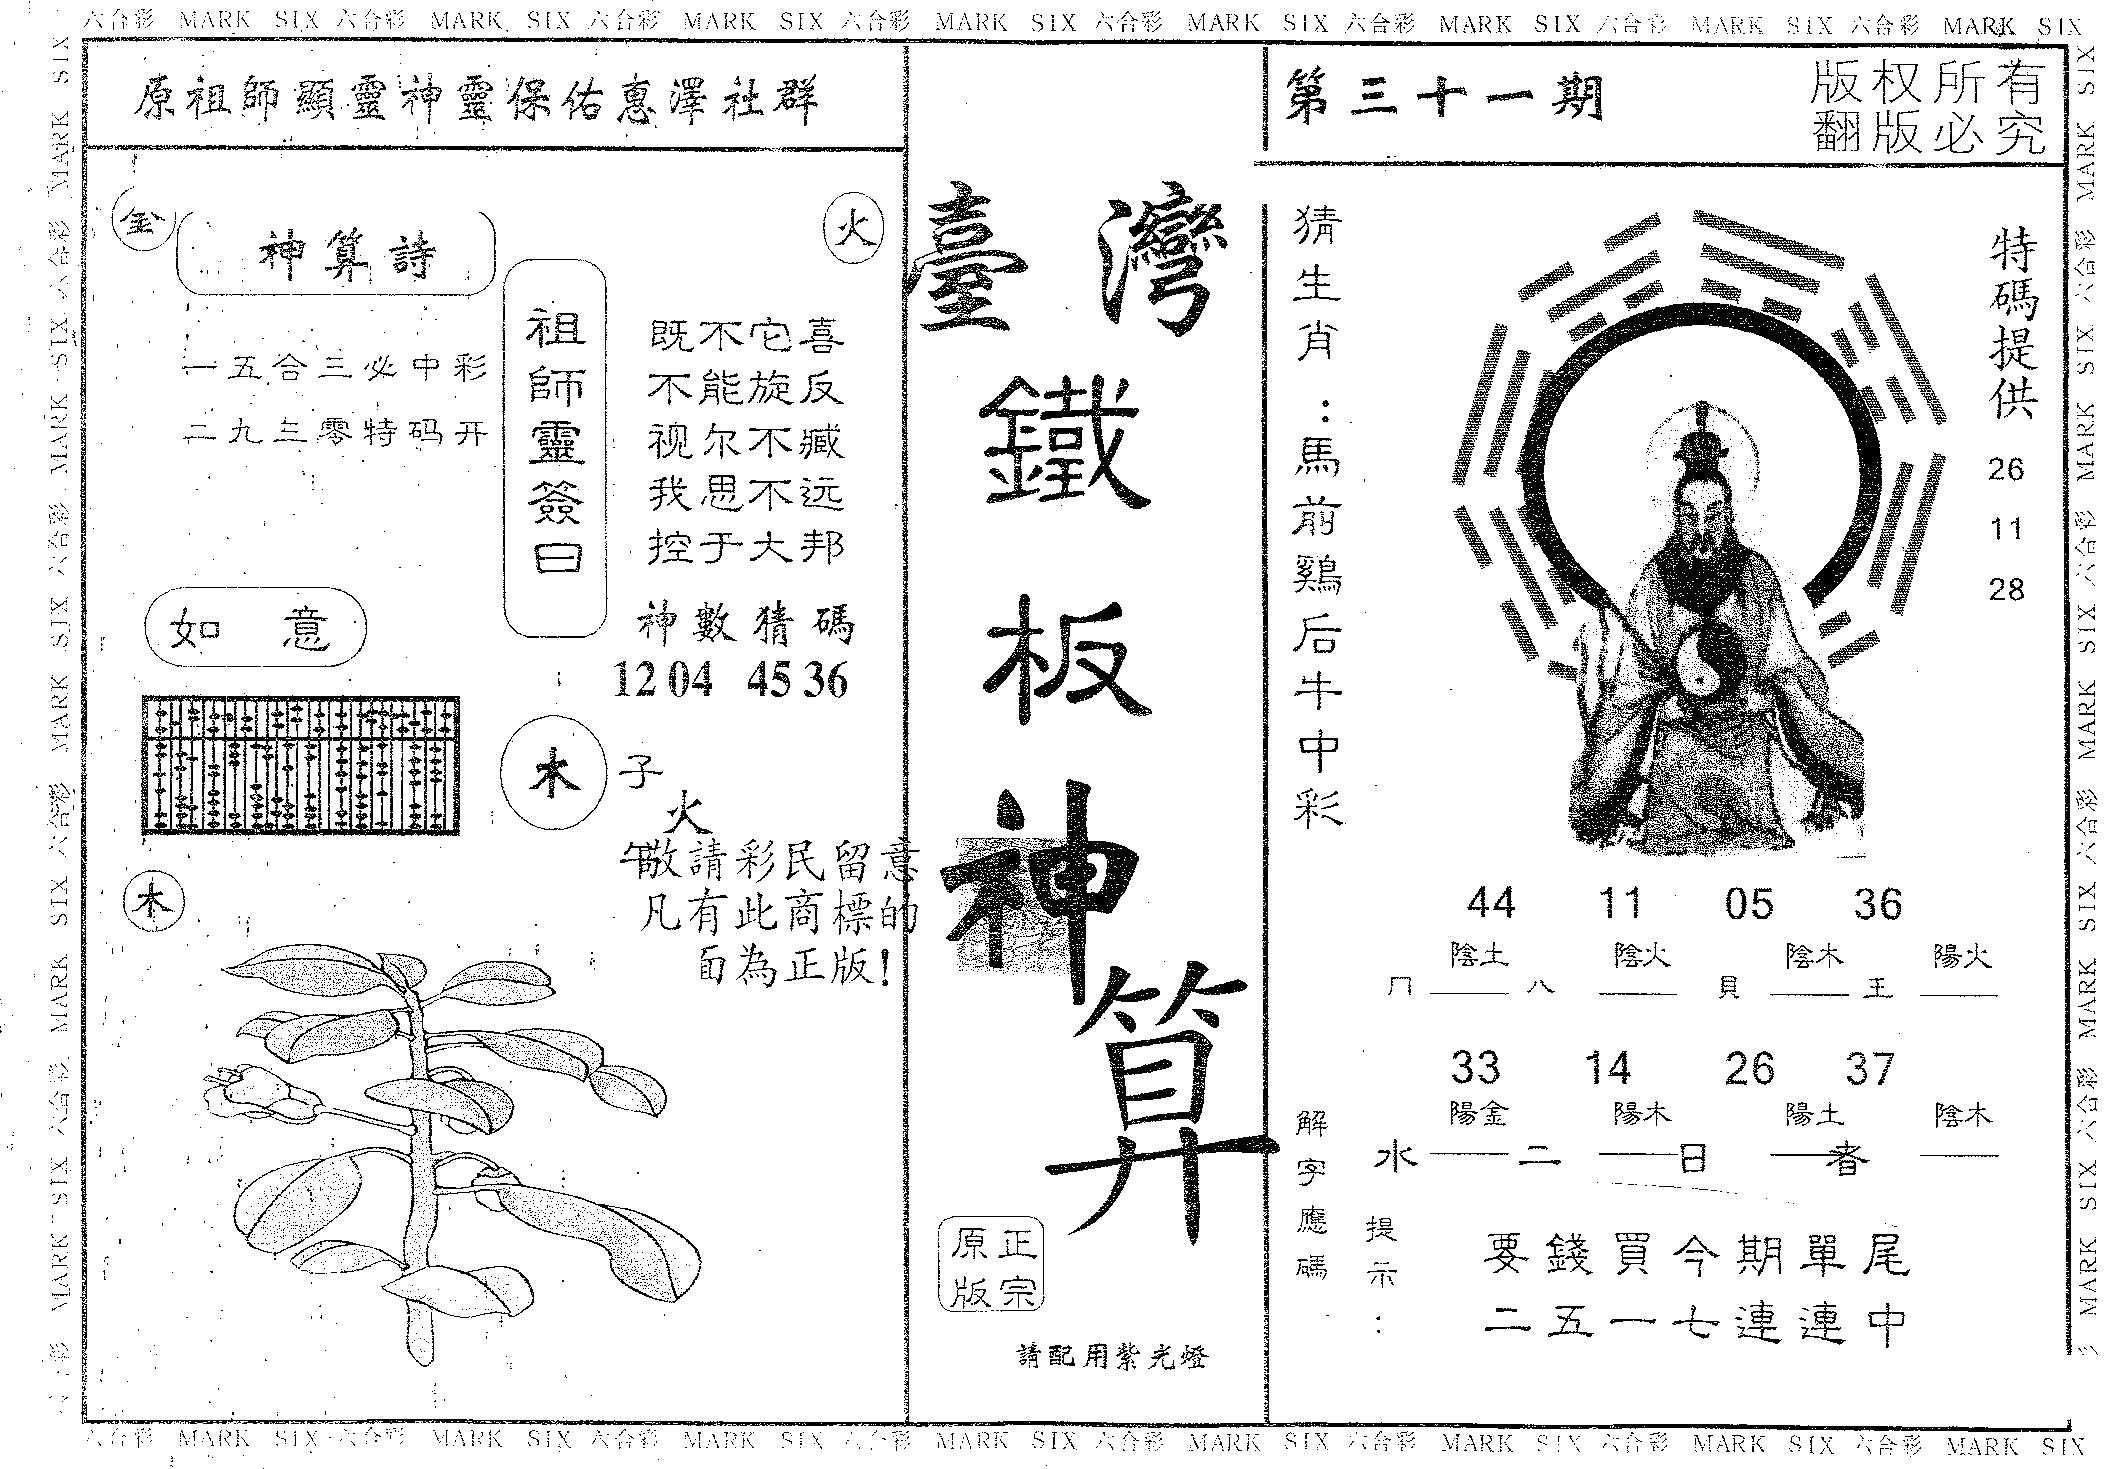 六合彩 MARK SIX 六合彩 MARK SIX 六合彩 MARK SIX 六合彩 MARK SIX 六合彩 MARK SIX 六合彩 MARK SIX 六合彩 MARK SIX 六合彩 MARK SIX
原祖師顯靈神靈保佑惠澤社群
第三十一期
版权所有
翻版必究
金
神算詩
火
一五合三必中彩
二九三零特码开
祖師靈簽曰
既不它喜
不能旋反
视尔不臧
我思不远
控于大邦
神數猜碼
12 04 45 36
如意
木
子
火
午
敬請彩民留意
凡有此商標的
面為正版!
木
臺灣
鐵
板
神
算
正宗
原版
請配用紫光燈
猜生肖:馬前鷄后牛中彩
特碼提供
26
11
28
44 11 05 36
陰土 陰火 陰木 陽火
冂 八 貝 王
33 14 26 37
陽金 陽木 陽土 陰木
水 二 日 者
解字應碼
提示:
要錢買今期單尾
二五一七連連中
六合彩 MARK SIX 六合彩 MARK SIX 六合彩 MARK SIX 六合彩 MARK SIX 六合彩 MARK SIX 六合彩 MARK SIX 六合彩 MARK SIX 六合彩 MARK SIX